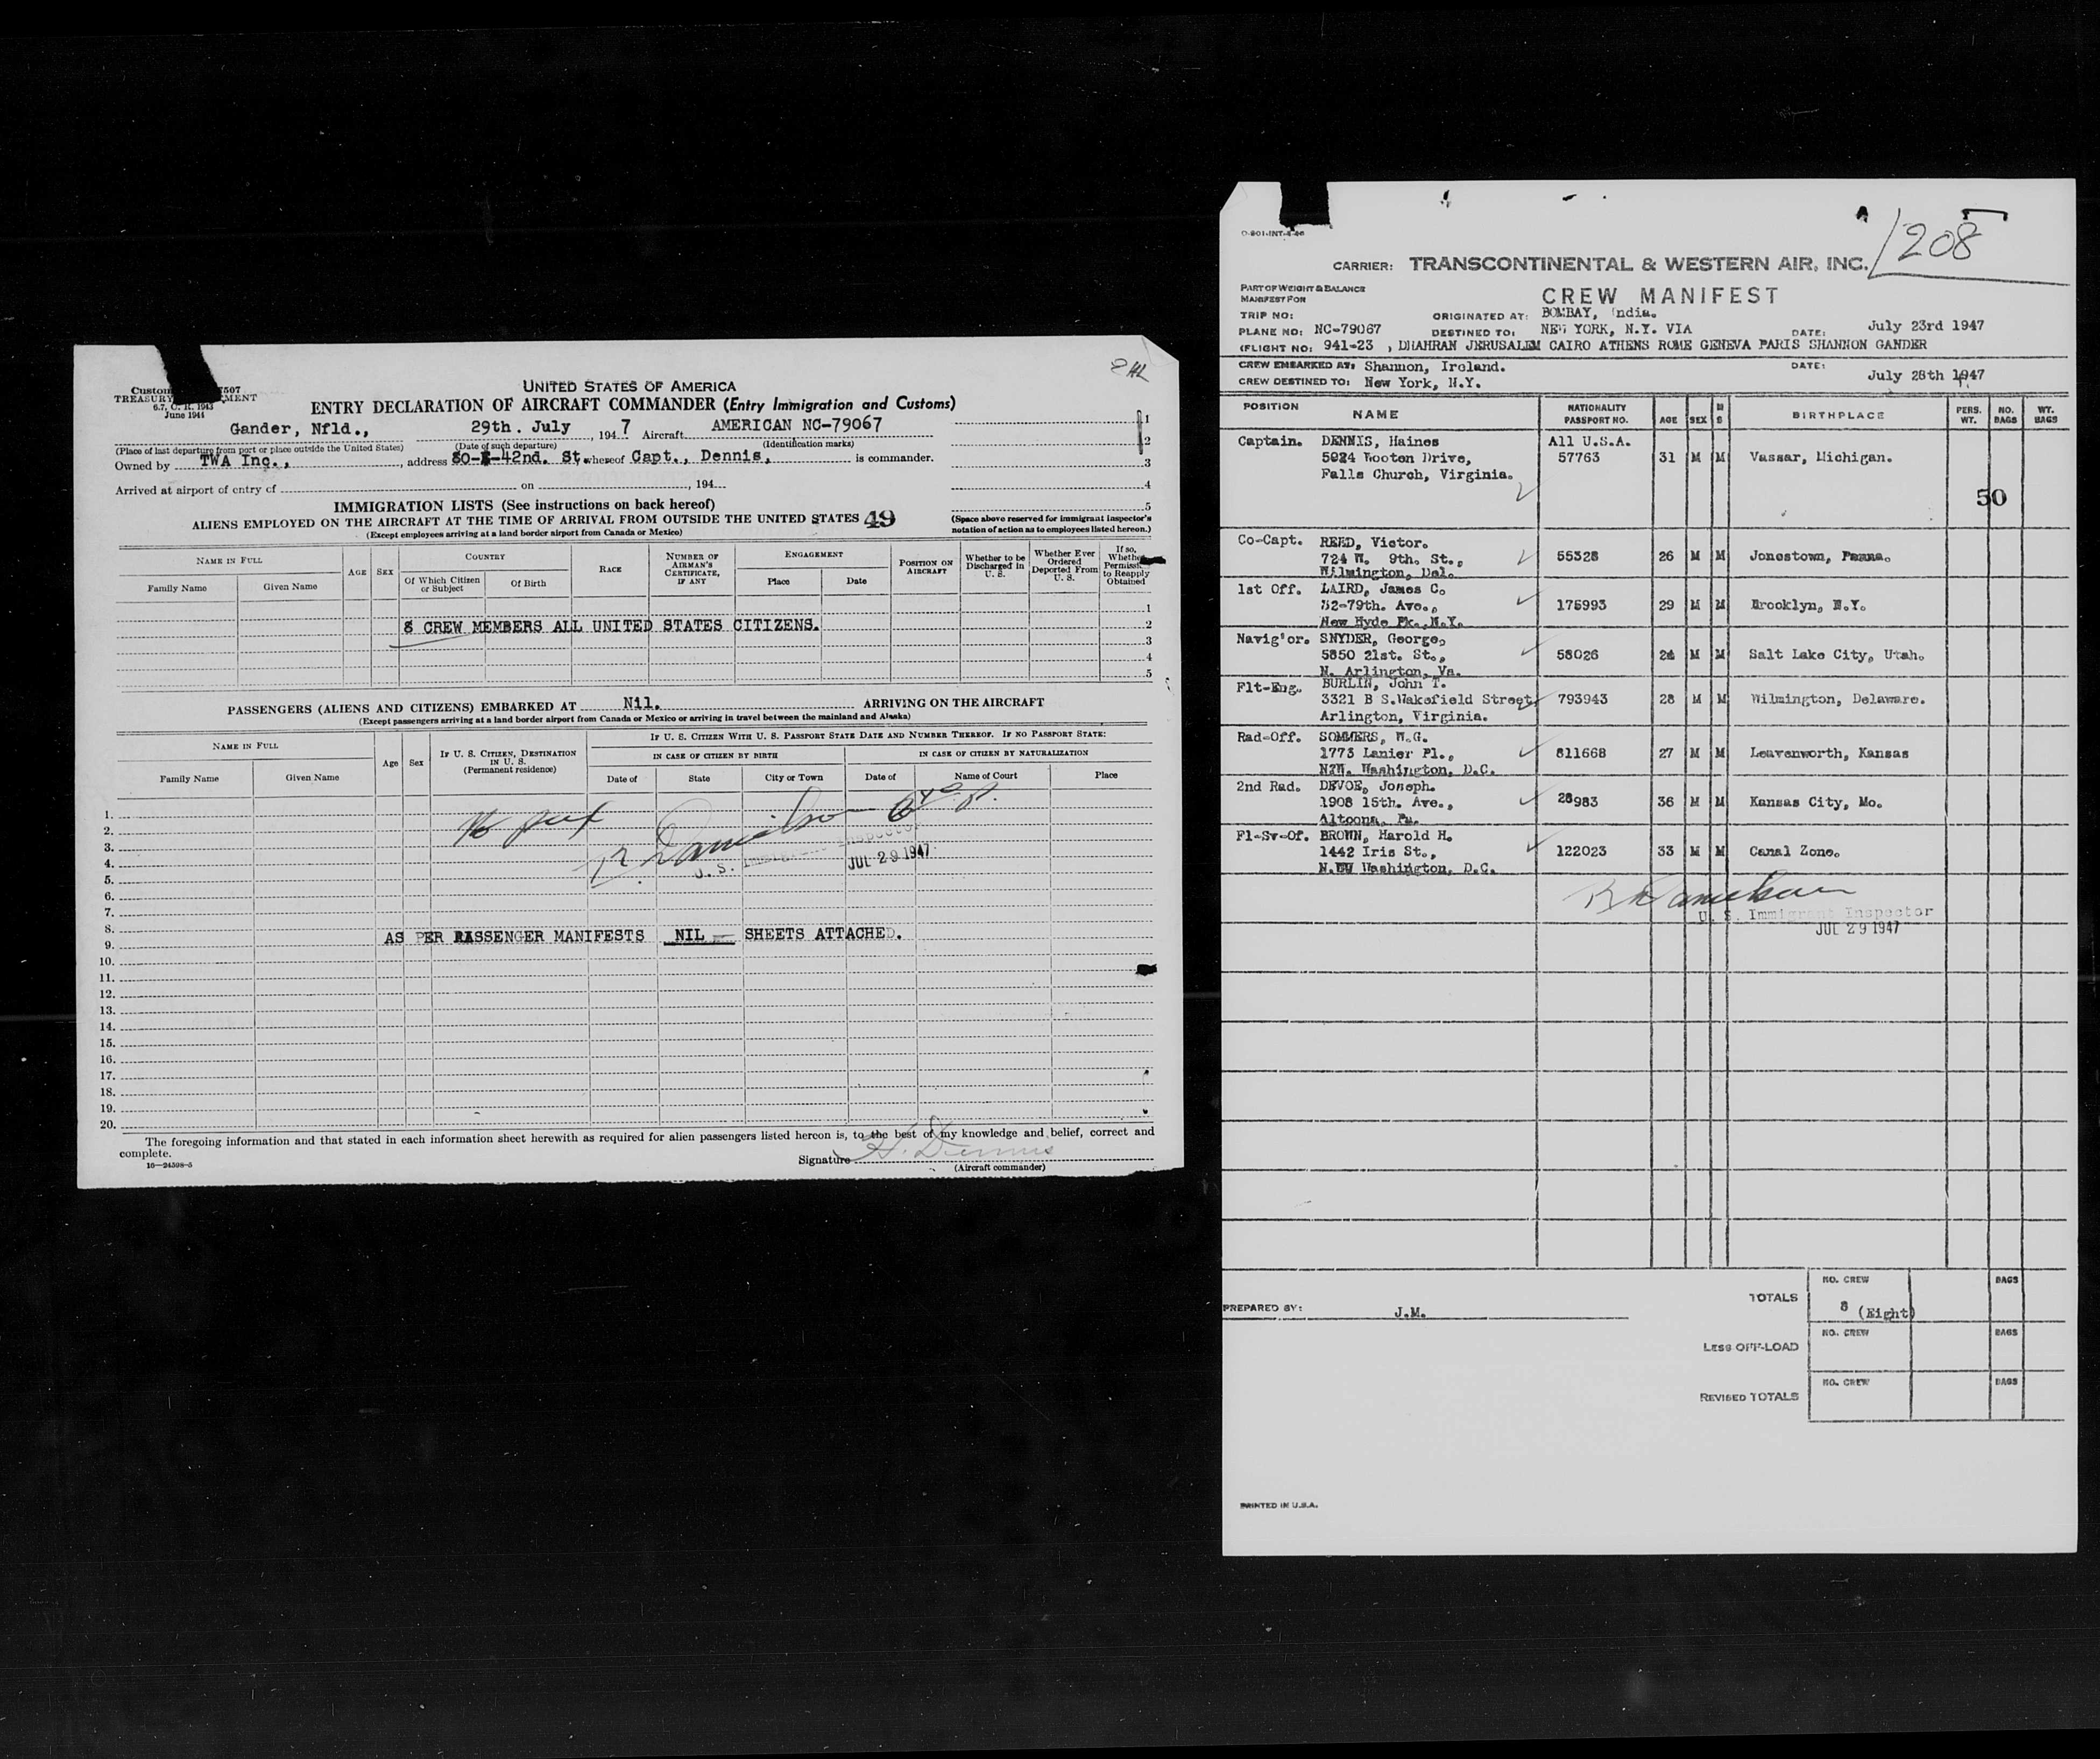 UNITED STATES OF AMERICA
ENTRY DECLARATION OF AIRCRAFT COMMANDER (Entry Immigration and Customs)
Custom 7507
TREASURY MENT
June 1944
Gander, Nfld., 29th. July , 1947 Aircraft AMERICAN NC-79067
(Place of last departure from port or place outside the United States) (Date of such departure) (Identification marks)
Owned by TWA Inc., , address 80-E-42nd. St. whereof Capt., Dennis, is commander.
Arrived at airport of entry of on , 194
1
2
3
4
5
IMMIGRATION LISTS (See instructions on back hereof)
ALIENS EMPLOYED ON THE AIRCRAFT AT THE TIME OF ARRIVAL FROM OUTSIDE THE UNITED STATES 49
(Except employees arriving at a land border airport from Canada or Mexico)
(Space above reserved for immigrant inspector's
notation of action as to employees listed hereon.)
NAME IN FULL AGE SEX COUNTRY RACE NUMBER OF AIRMAN'S CERTIFICATE, IF ANY ENGAGEMENT POSITION ON AIRCRAFT Whether to be Discharged in U. S. Whether Ever Ordered Deported From U. S. If so, Whether Permiss. to Reapply Obtained
Family Name Given Name Of Which Citizen or Subject Of Birth Place Date
1
8 CREW MEMBERS ALL UNITED STATES CITIZENS. 2
3
4
5
PASSENGERS (ALIENS AND CITIZENS) EMBARKED AT Nil. ARRIVING ON THE AIRCRAFT
(Except passengers arriving at a land border airport from Canada or Mexico or arriving in travel between the mainland and Alaska)
NAME IN FULL Age Sex IF U. S. CITIZEN, DESTINATION IN U. S. (Permanent residence) IF U. S. CITIZEN WITH U. S. PASSPORT STATE DATE AND NUMBER THEREOF. IF NO PASSPORT STATE:
IN CASE OF CITIZEN BY BIRTH IN CASE OF CITIZEN BY NATURALIZATION
Family Name Given Name Date of State City or Town Date of Name of Court Place
1.
2.
3.
4. U. S. Immigrant Inspector JUL 29 1947
5.
6.
7.
8.
9. AS PER PASSENGER MANIFESTS NIL SHEETS ATTACHED.
10.
11.
12.
13.
14.
15.
16.
17.
18.
19.
20.
The foregoing information and that stated in each information sheet herewith as required for alien passengers listed hereon is, to the best of my knowledge and belief, correct and
complete.
16—24598-5
Signature H. Dennis
(Aircraft commander)
O-801-INT-4-46
208
CARRIER: TRANSCONTINENTAL & WESTERN AIR, INC.
PART OF WEIGHT & BALANCE
MANIFEST FOR
CREW MANIFEST
TRIP NO: ORIGINATED AT: BOMBAY, India.
PLANE NO: NC-79067 DESTINED TO: NEW YORK, N.Y. VIA DATE: July 23rd 1947
(FLIGHT NO: 941-23 , DHAHRAN JERUSALEM CAIRO ATHENS ROME GENEVA PARIS SHANNON GANDER
CREW EMBARKED AT: Shannon, Ireland. DATE: July 28th 1947
CREW DESTINED TO: New York, N.Y.
POSITION NAME NATIONALITY PASSPORT NO. AGE SEX M S BIRTHPLACE PERS. WT. NO. BAGS WT. BAGS
Captain. DENNIS, Haines All U.S.A.
5924 Wooten Drive, 57763 31 M M Vassar, Michigan.
Falls Church, Virginia.
50
Co-Capt. REED, Victor.
724 W. 9th. St., 55328 26 M M Jonestown, Penna.
Wilmington, Del.
1st Off. LAIRD, James C.
32-79th. Ave., 175993 29 M M Brooklyn, N.Y.
New Hyde Pk. N.Y.
Navig'or. SNYDER, George,
5850 21st. St., 58026 24 M M Salt Lake City, Utah.
N. Arlington, Va.
Flt-Eng. BURLIN, John T.
3321 B S.Wakefield Street, 793943 28 M M Wilmington, Delaware.
Arlington, Virginia.
Rad-Off. SOMMERS, W.G.
1773 Lanier Pl., 811668 27 M M Leavenworth, Kansas
N.W. Washington, D.C.
2nd Rad. DEVOE, Joseph.
1908 15th. Ave., 28983 36 M M Kansas City, Mo.
Altoona, Pa.
Fl-Sv-Of. BROWN, Harold H.
1442 Iris St., 122023 33 M M Canal Zone.
N.W Washington, D.C.
U. S. Immigrant Inspector
JUL 29 1947
TOTALS NO. CREW 8 (Eight) BAGS
PREPARED BY: J.M.
LESS OFF-LOAD NO. CREW BAGS
REVISED TOTALS NO. CREW BAGS
PRINTED IN U.S.A.